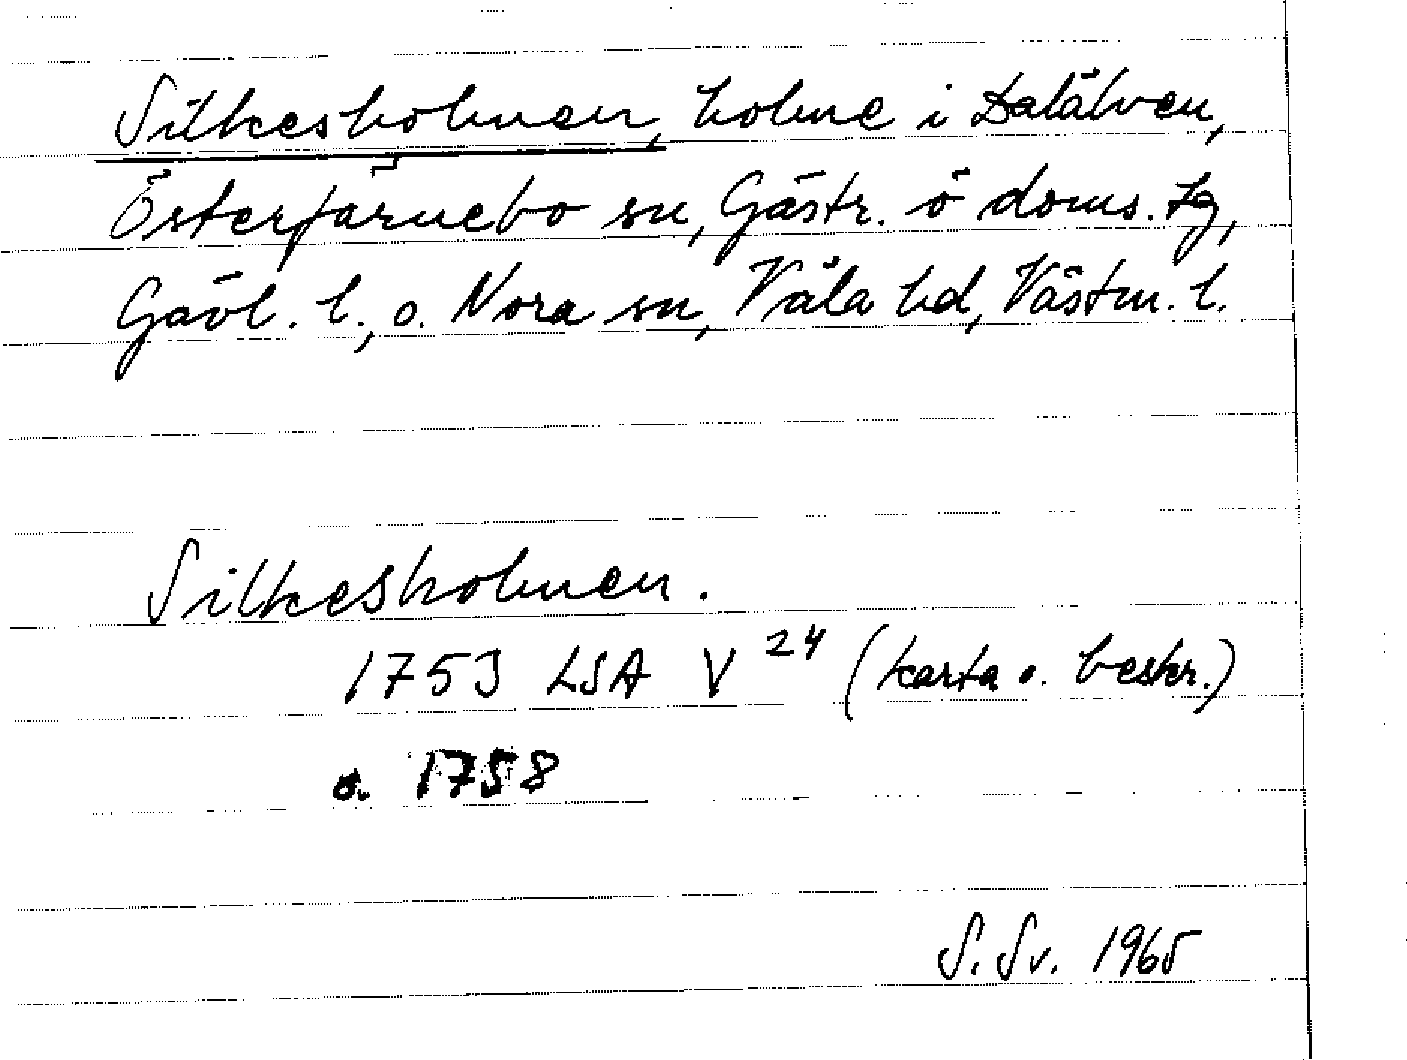 Silkesholmen, holme i Dalälven,
Österfärnebo sn, Gästr. ö doms. tg,
Gävl. l., o. Nora sn, Våla hd, Västm. l.
Silkesholmen.
1753 LSA V 24 (karta o. beskr.)
o. 1758
S. Sv. 1965